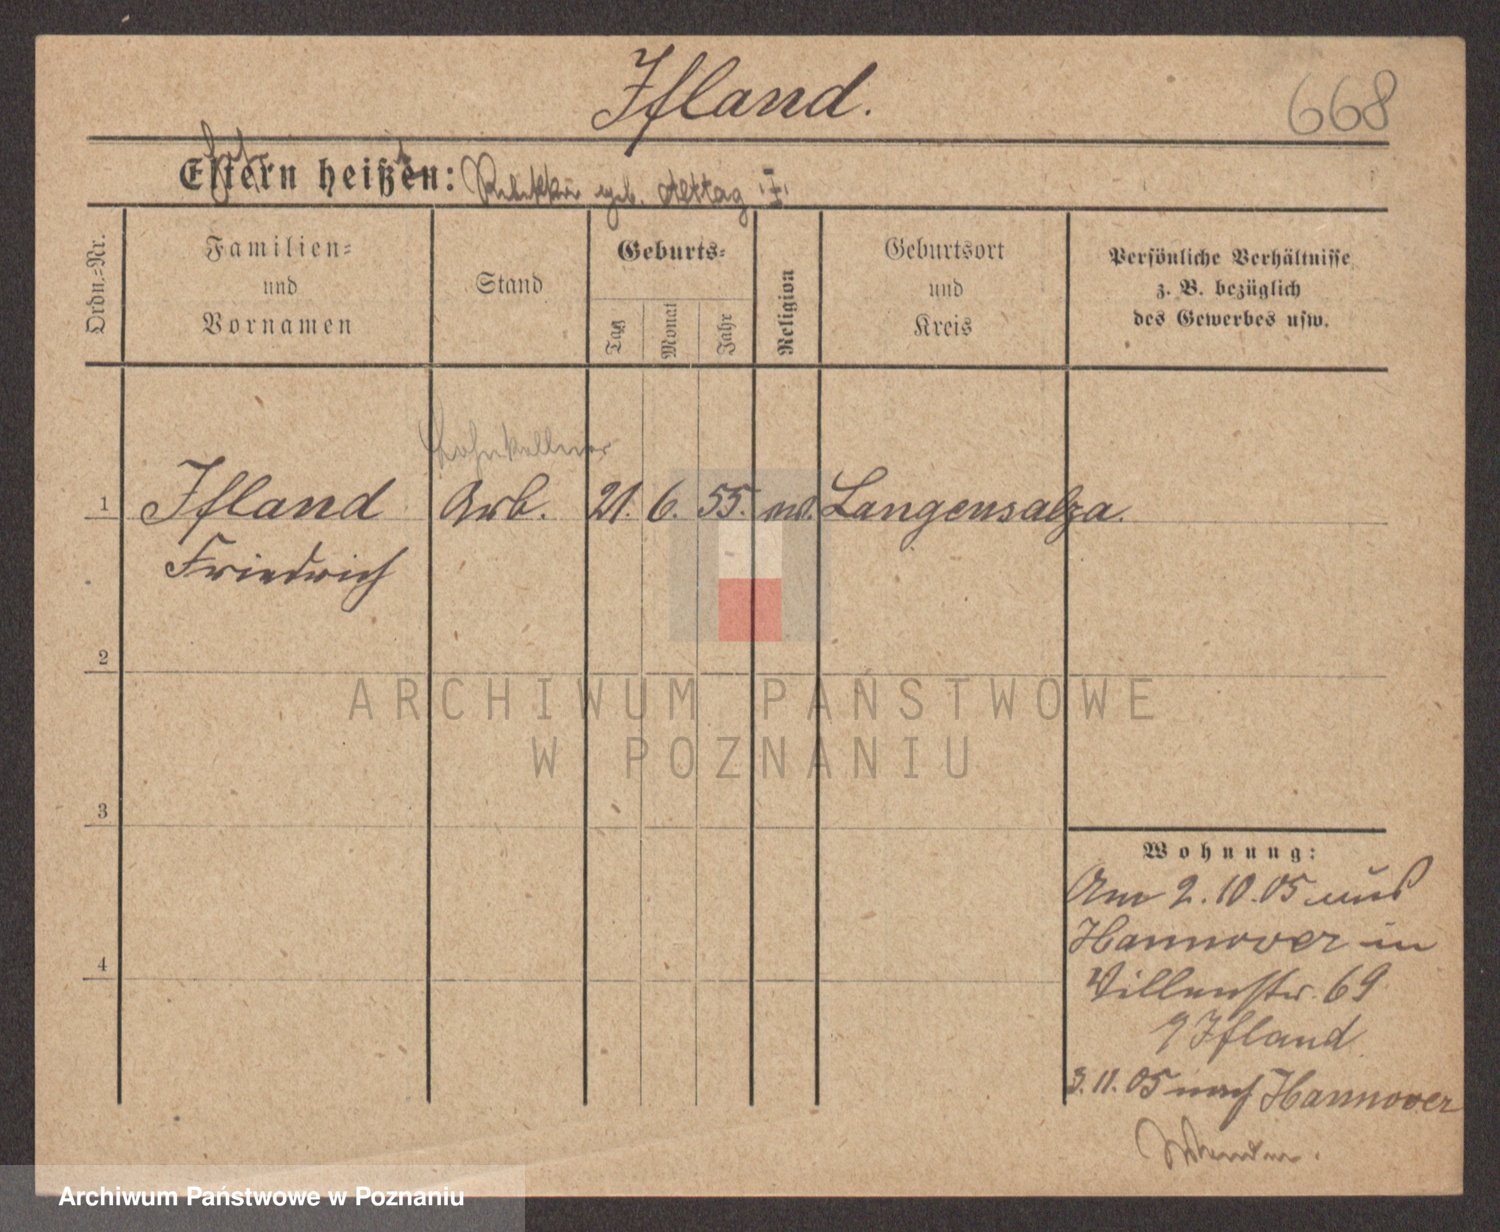 Ifland.
668
Eltern heißen:
geb.
Ordn.=Nr.
Familien=
und
Vornamen
Stand
Geburts=
Tag
Monat
Jahr
Religion
Geburtsort
und
Kreis
Persönliche Verhältnisse
z. B. bezüglich
des Gewerbes usw.
Lohnkellner
1 Ifland Arb. 21. 6. 55. Langensalza.
Friedrich
2
3
4
ARCHIWUM PAŃSTWOWE
W POZNANIU
Wohnung:
Am 2.10.05 aus
Hannover in
Villenstr. 69
Ifland
3.11.05 nach Hannover
Archiwum Państwowe w Poznaniu